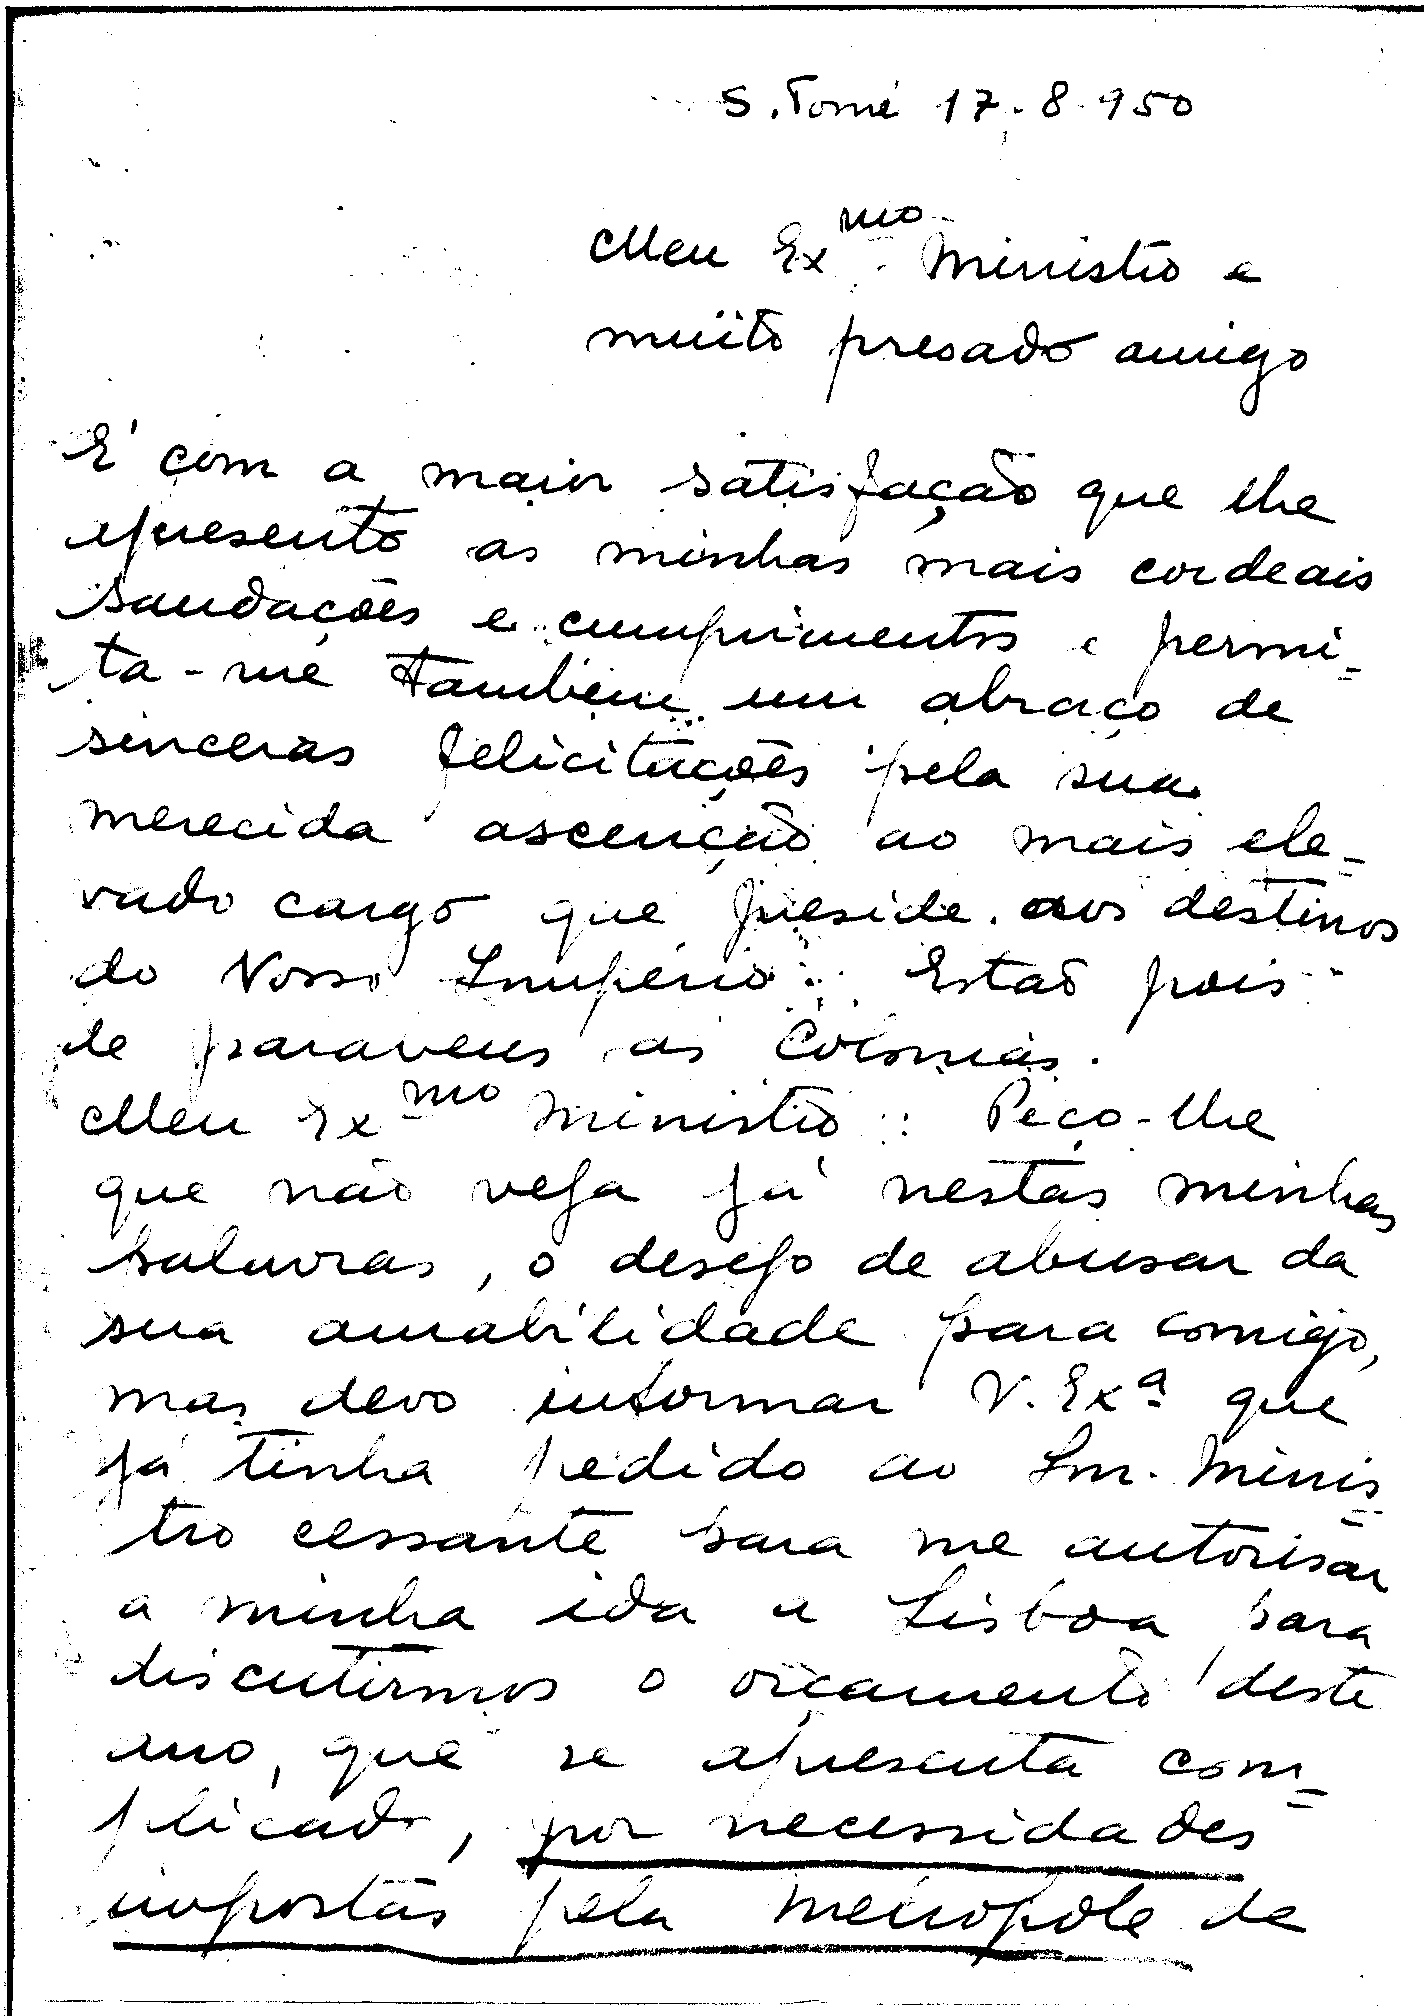 S. Tomé 17-8-950
Meu Ex.mo Ministro e
muito presado amigo
E' com a maior satisfação que lhe
apresento as minhas mais cordeais
saudações e cumprimentos e permi=
ta-me também um abraço de
sinceras felicitações pela sua
merecida ascenção ao mais ele-
vado cargo que preside aos destinos
do Nosso Império. Estão pois
de parabens as Colonias.
Meu Exmo Ministro: Peço-lhe
que não veja já nestas minhas
palavras, o desejo de abusar da
sua amabilidade para comigo,
mas devo informar V. Exª que
já tinha pedido ao Snr. Minis=
tro cessante para me autorisar
a minha ida a Lisboa para
discutirmos o orçamento deste
ano, que se apresenta com=
plicado, por necessidades
impostas pela metropole de